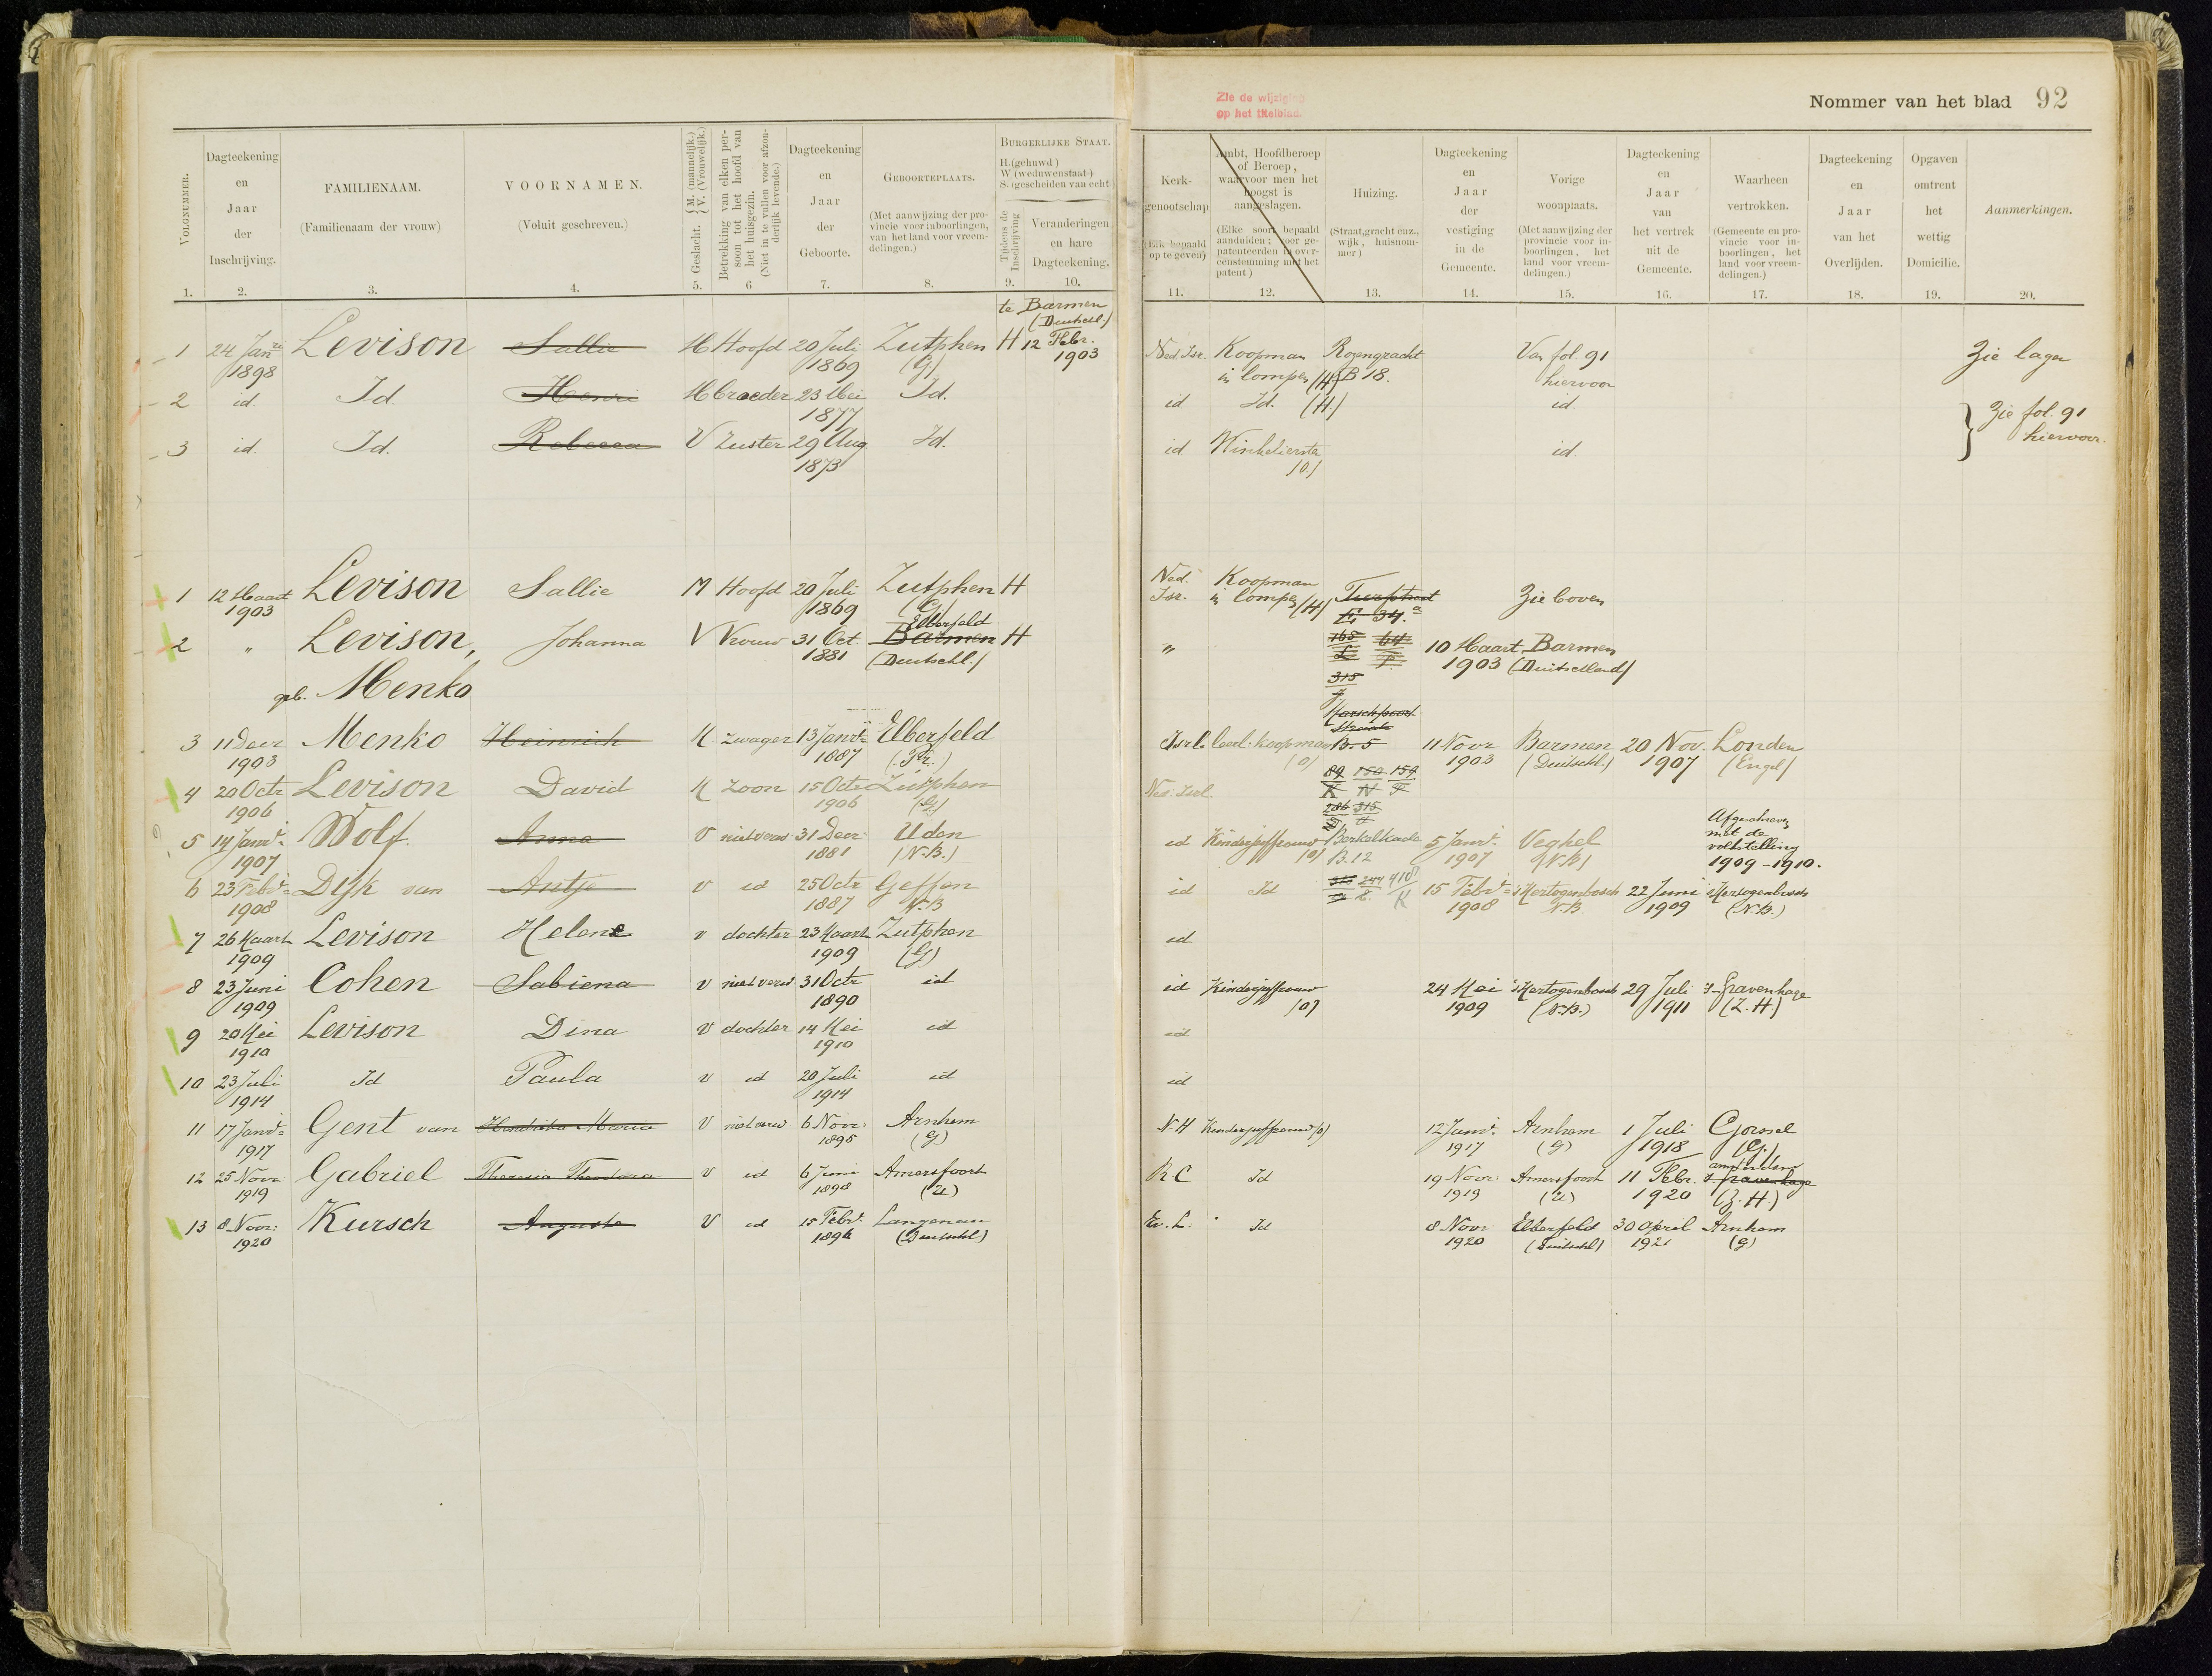 Zie de wijziging
op het titelblad.
Nommer van het blad 92
VOLGNUMMER.
Dagteekening en Jaar der Inschrijving.
FAMILIENAAM. (Familienaam der vrouw)
VOORNAMEN. (Voluit geschreven.)
Geslacht. { M. (mannelijk.) V. (Vrouwelijk.)
Betrekking van elken persoon tot het hoofd van het huisgezin. (Niet in te vullen voor afzonderlijk levende.)
Dagteekening en Jaar der Geboorte.
GEBOORTEPLAATS. (Met aanwijzing der provincie voor inboorlingen, van het land voor vreemdelingen.)
BURGERLIJKE STAAT. H. (gehuwd) W (weduwenstaat) S. (gescheiden van echt
Tijdens de Inschrijving
Veranderingen en hare Dagteekening.
Kerkgenootschap (Elk bepaald op te geven)
Ambt, Hoofdberoep of Beroep, waarvoor men het hoogst is aangeslagen. (Elke soort bepaald aanduiden; voor gepatenteerden in overeenstemming met het patent)
Huizing. (Straat, gracht enz., wijk, huisnommer)
Dagteekening en Jaar der vestiging in de Gemeente.
Vorige woonplaats. (Met aanwijzing der provincie voor inboorlingen, het land voor vreemdelingen.)
Dagteekening en Jaar van het vertrek uit de Gemeente.
Waarheen vertrokken. (Gemeente en provincie voor inboorlingen, het land voor vreemdelingen.)
Dagteekening en Jaar van het Overlijden.
Opgaven omtrent het wettig Domicilie.
Aanmerkingen.
1. 2. 3. 4. 5. 6 7. 8. 9. 10. 11. 12. 13. 14. 15. 16. 17. 18. 19. 20.
te Barmen
(Duitschl.)
1 24 Jan 1898 Levison Sallie M Hoofd 20 Juli 1869 Zutphen (G) H 12 Febr. 1903 Ned. Isr. Koopman in lompen (H) Rozengracht B 18. Van fol. 91 hiervoor Zie lager
2 id. Id. Henri M broeder 23 Mei 1877 Id. id Id. (H.) id. } Zie fol. 91 hiervoor.
3 id. Id. Rebecca V Zuster 29 Aug 1873 Id. id Winkelierster (O.) id.
1 12 Maart 1903 Levison Sallie M Hoofd 20 Juli 1869 Zutphen (G) H Ned. Isr. Koopman in lompen (H) E 34.a Zie boven
2 " Levison, Johanna V Vrouw 31 Oct. 1881 Elberfeld Barmen (Duitschl.) H " 165 L 64 F 10 Maart 1903 Barmen (Duitschland)
geb. Menko
315
3 11 Decr 1903 Menko Heinrich M zwager 13 Janri 1887 Elberfeld (Pr.) Isrl. leerl. koopman (O) B. 5 11 Novr 1903 Barmen (Duitschl.) 20 Nov. 1907 Londen (Engel)
4 20 Octr 1906 Levison David M Zoon 15 Octr 1906 Zutphen (G) Ned. Isrl. 89 K 150 N 159 F
286 315
5 14 Janri 1907 Wolf. Anna V niet verw 31 Decr 1881 Uden (N.B.) id Kinderjuffrouw (O) Berkelkade B. 12 5 Janri 1907 Veghel (N.B) Afgeschreven met de volkstelling 1909-1910.
6 23 Febri 1908 Dijk van Antje V id 25 Octr 1887 Geffen N.B id Id 244 410 K 15 Febri 1908 s Hertogenbosch N.B. 22 Juni 1909 s Hertogenbosch (N.B.)
7 26 Maart 1909 Levison Helene v dochter 23 Maart 1909 Zutphen (G) id
8 23 Juni 1909 Cohen Sabiena v niet verw 31 Octr 1890 id id Kinderjuffrouw (O) 24 Mei 1909 s Hertogenbosch (N.B.) 29 Juli 1911 s-Gravenhage (Z.H.)
9 20 Mei 1910 Levison Dina v dochter 14 Mei 1910 id id
10 23 Juli 1914 Id Paula v id 20 Juli 1914 id id
11 17 Janri 1917 Gent van Hendrika Maria V niet verw 6 Novr 1895 Arnhem (G) N.H Kinderjuffrouw (O) 12 Janri 1917 Arnhem (G) 1 Juli 1918 Gorssel (G.)
12 25 Novr 1919 Gabriel Theresia Theodora v id 6 Juni 1898 Amersfoort (U) R.C Id 19 Novr. 1919 Amersfoort (U) 11 Febr. 1920 Amsterdam s. Gravenhage (Z.H.)
13 8 Novr: 1920 Kursch Auguste V id 15 Febr. Langenau (Duitschl) Ev. L. Id 8 Novr 1920 Elberfeld (Duitschl) 30 April 1921 Arnhem (G)